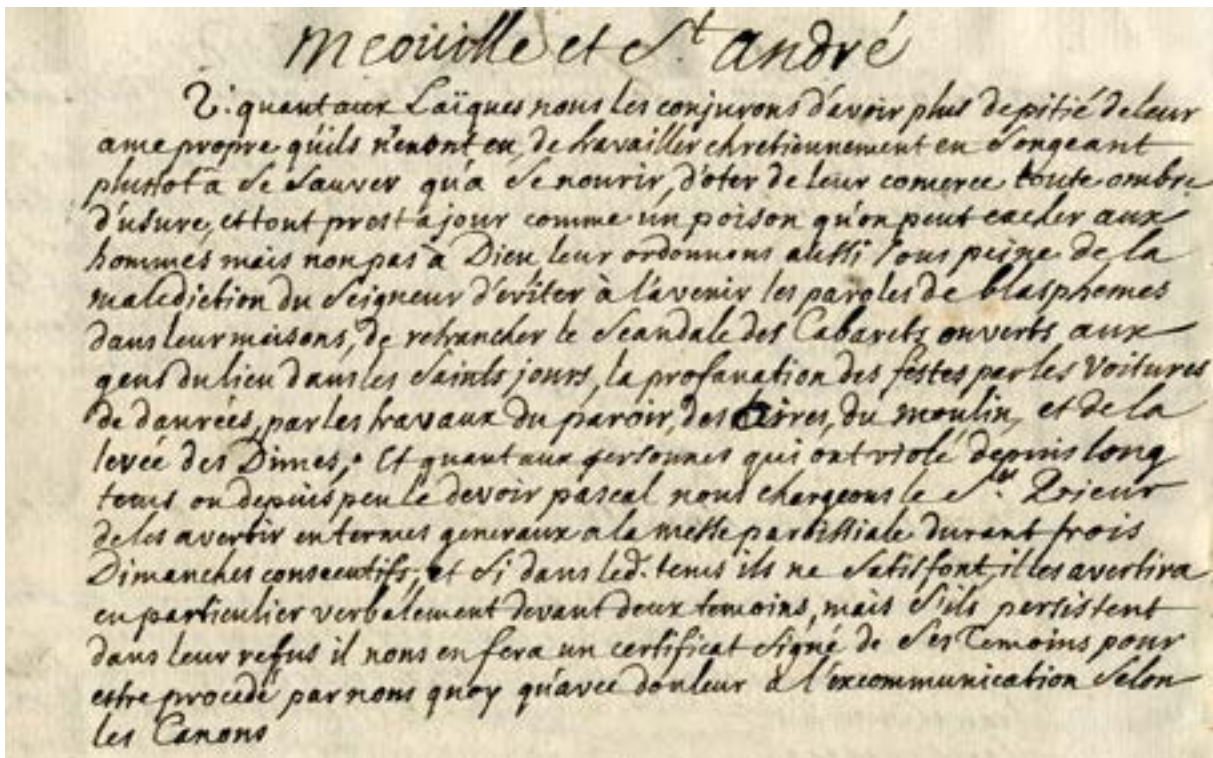 Meouille et St. André
7. quant aux Laïques nous les conjurons d'avoir plus de pitié de leur
ame propre qu'ils n'en ont eu, de travailler chretiennement en songeant
plustot a se sauver qu'a se nourir, d'oter de leur comerce toute ombre
d'usure, et tout prest a jour comme un poison qu'on peut cacher aux
hommes mais non pas à Dieu leur ordonnons aussi sous peine de la
malediction du seigneur d'eviter à l'avenir les paroles de blasphemes
dans leur maisons, de retrancher le scandale des Cabarets ouverts aux
gens du lieu dans les saints jours, la profanation des festes par les voitures
de danrées, par les travaux du paroir, des aires, du moulin, et de la
levée des Dimes, Et quant aux personnes qui ont violé depuis long
tems ou depuis peu le devoir pascal nous chargeons le Sr. Prieur
de les avertir en termes generaux a la messe parrissiale durant trois
Dimanches consecutifs, et si dans led. tems ils ne satisfont, il les avertira
en particulier verbalement devant deux temoins, mais s'ils persistent
dans leur refus il nous en fera un certificat signé de ses Temoins pour
estre procedé par nous quoy qu'avec douleur à l'excommunication selon
les Canons